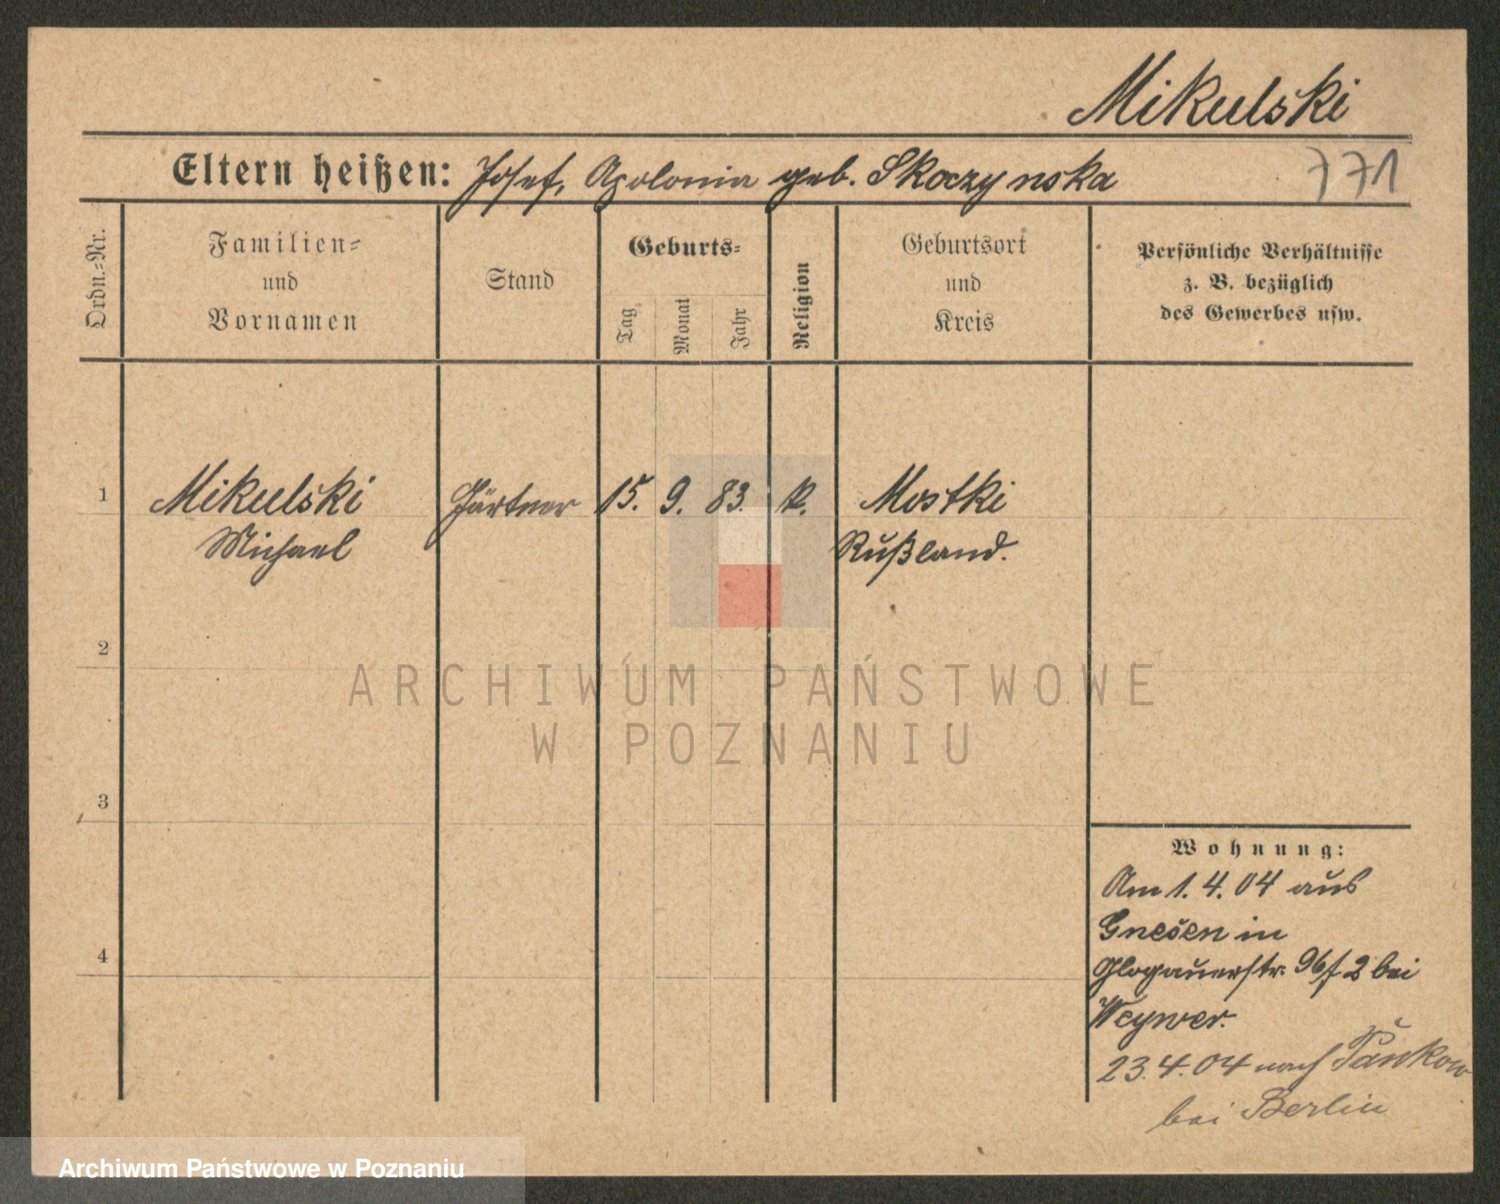 Mikulski
Eltern heißen: Josef, Apolonia geb. Skoczynska
771
Ordn.=Nr.
Familien=
und
Vornamen
Stand
Geburts=
Tag
Monat
Jahr
Religion
Geburtsort
und
Kreis
Persönliche Verhältnisse
z. B. bezüglich
des Gewerbes usw.
1 Mikulski Gärtner 15. 9. 83. k. Mostki
Michael Rußland.
2
3
4
Wohnung:
Am 1. 4. 04 aus
Gnesen in
Glogauerstr. 96/2 bei
23.4.04 nach Pankow
bei Berlin
ARCHIWUM PAŃSTWOWE
W POZNANIU
Archiwum Państwowe w Poznaniu